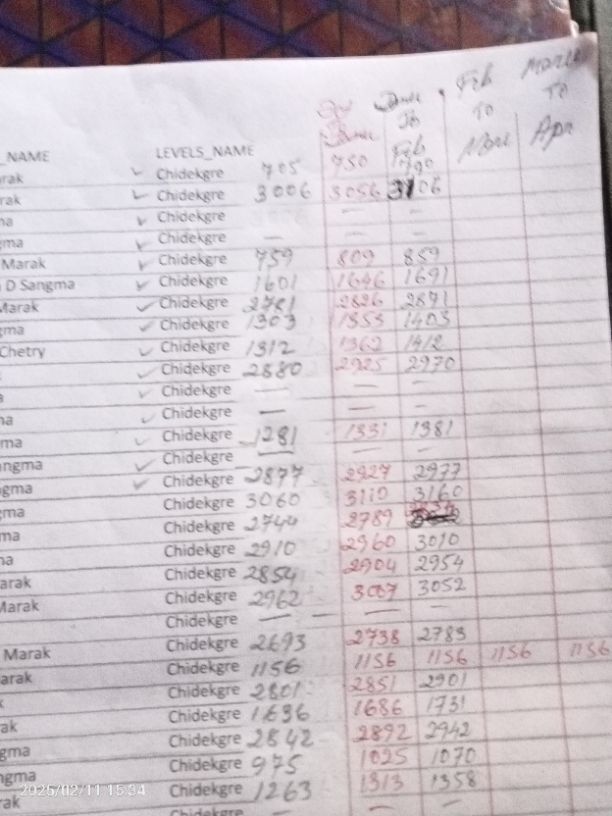 Feb March
Dec Janu To To
Janu To Mar Apr
_NAME LEVELS_NAME Feb
arak ✓ Chidekgre 705 750 790
rak ✓ Chidekgre 3006 3056 3106
na ✓ Chidekgre — —
gma ✓ Chidekgre — — —
Marak ✓ Chidekgre 759 809 859
D Sangma ✓ Chidekgre 1601 1646 1691
Marak ✓ Chidekgre 2781 2826 2871
gma ✓ Chidekgre 1303 1353 1403
Chetry ✓ Chidekgre 1312 1362 1412
✓ Chidekgre 2880 2925 2970
a ✓ Chidekgre — — —
✓ Chidekgre — — —
na ✓ Chidekgre 1281 1331 1381
ma ✓ Chidekgre — — —
angma ✓ Chidekgre 2877 2927 2977
gma ✓ Chidekgre 3060 3110 3160
gma Chidekgre 2744 2789
ma Chidekgre 2910 2960 3010
na Chidekgre 2854 2904 2954
arak Chidekgre 2962 3007 3052
Marak Chidekgre — — — —
Chidekgre 2693 2738 2783
Marak Chidekgre 1156 1156 1156 1156 1156
arak Chidekgre 2801 2851 2901
k Chidekgre 1636 1686 1731
ak Chidekgre 2842 2892 2942
gma Chidekgre 975 1025 1070
ngma Chidekgre 1263 1313 1358
rak Chidekgre — — —
2025/02/11 15:34